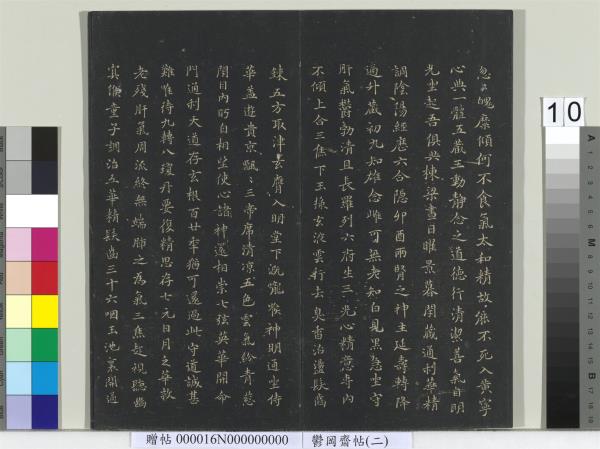 忽之魄糜傾何不食氣太和精故能不死入黃寧
心典一體五藏王動靜念之道德行清潔善氣自明
光坐起吾俱共棟梁晝日曜景暮閉藏通利華精
調陰陽經歷六合隱卯酉兩腎之神主延壽轉降
適斗藏初九知雄守雌可無老知白見黑急坐守
肝氣鬱勃清且長羅列六府生三光心精意專內
不傾上合三焦下玉漿玄液雲行去臭香治蕩髮齒
鍊五方取津玄膺入明堂下溉喉嚨神明通坐侍
華蓋遊貴京飄三帝席清涼五色雲氣紛青葱
閉目內眄自相望使心諸神還相崇七弦英華開命
門通利天道存玄根百廿年猶可還過此守道誠甚
難唯待九轉八瓊丹要復精思存七元日月之華救
老殘肝氣周流終無端肺之為氣三焦起視聽幽
冥候童子調治五華精髮齒三十六咽玉池裏開通
10
贈帖 000016N000000000 鬱岡齋帖(二)